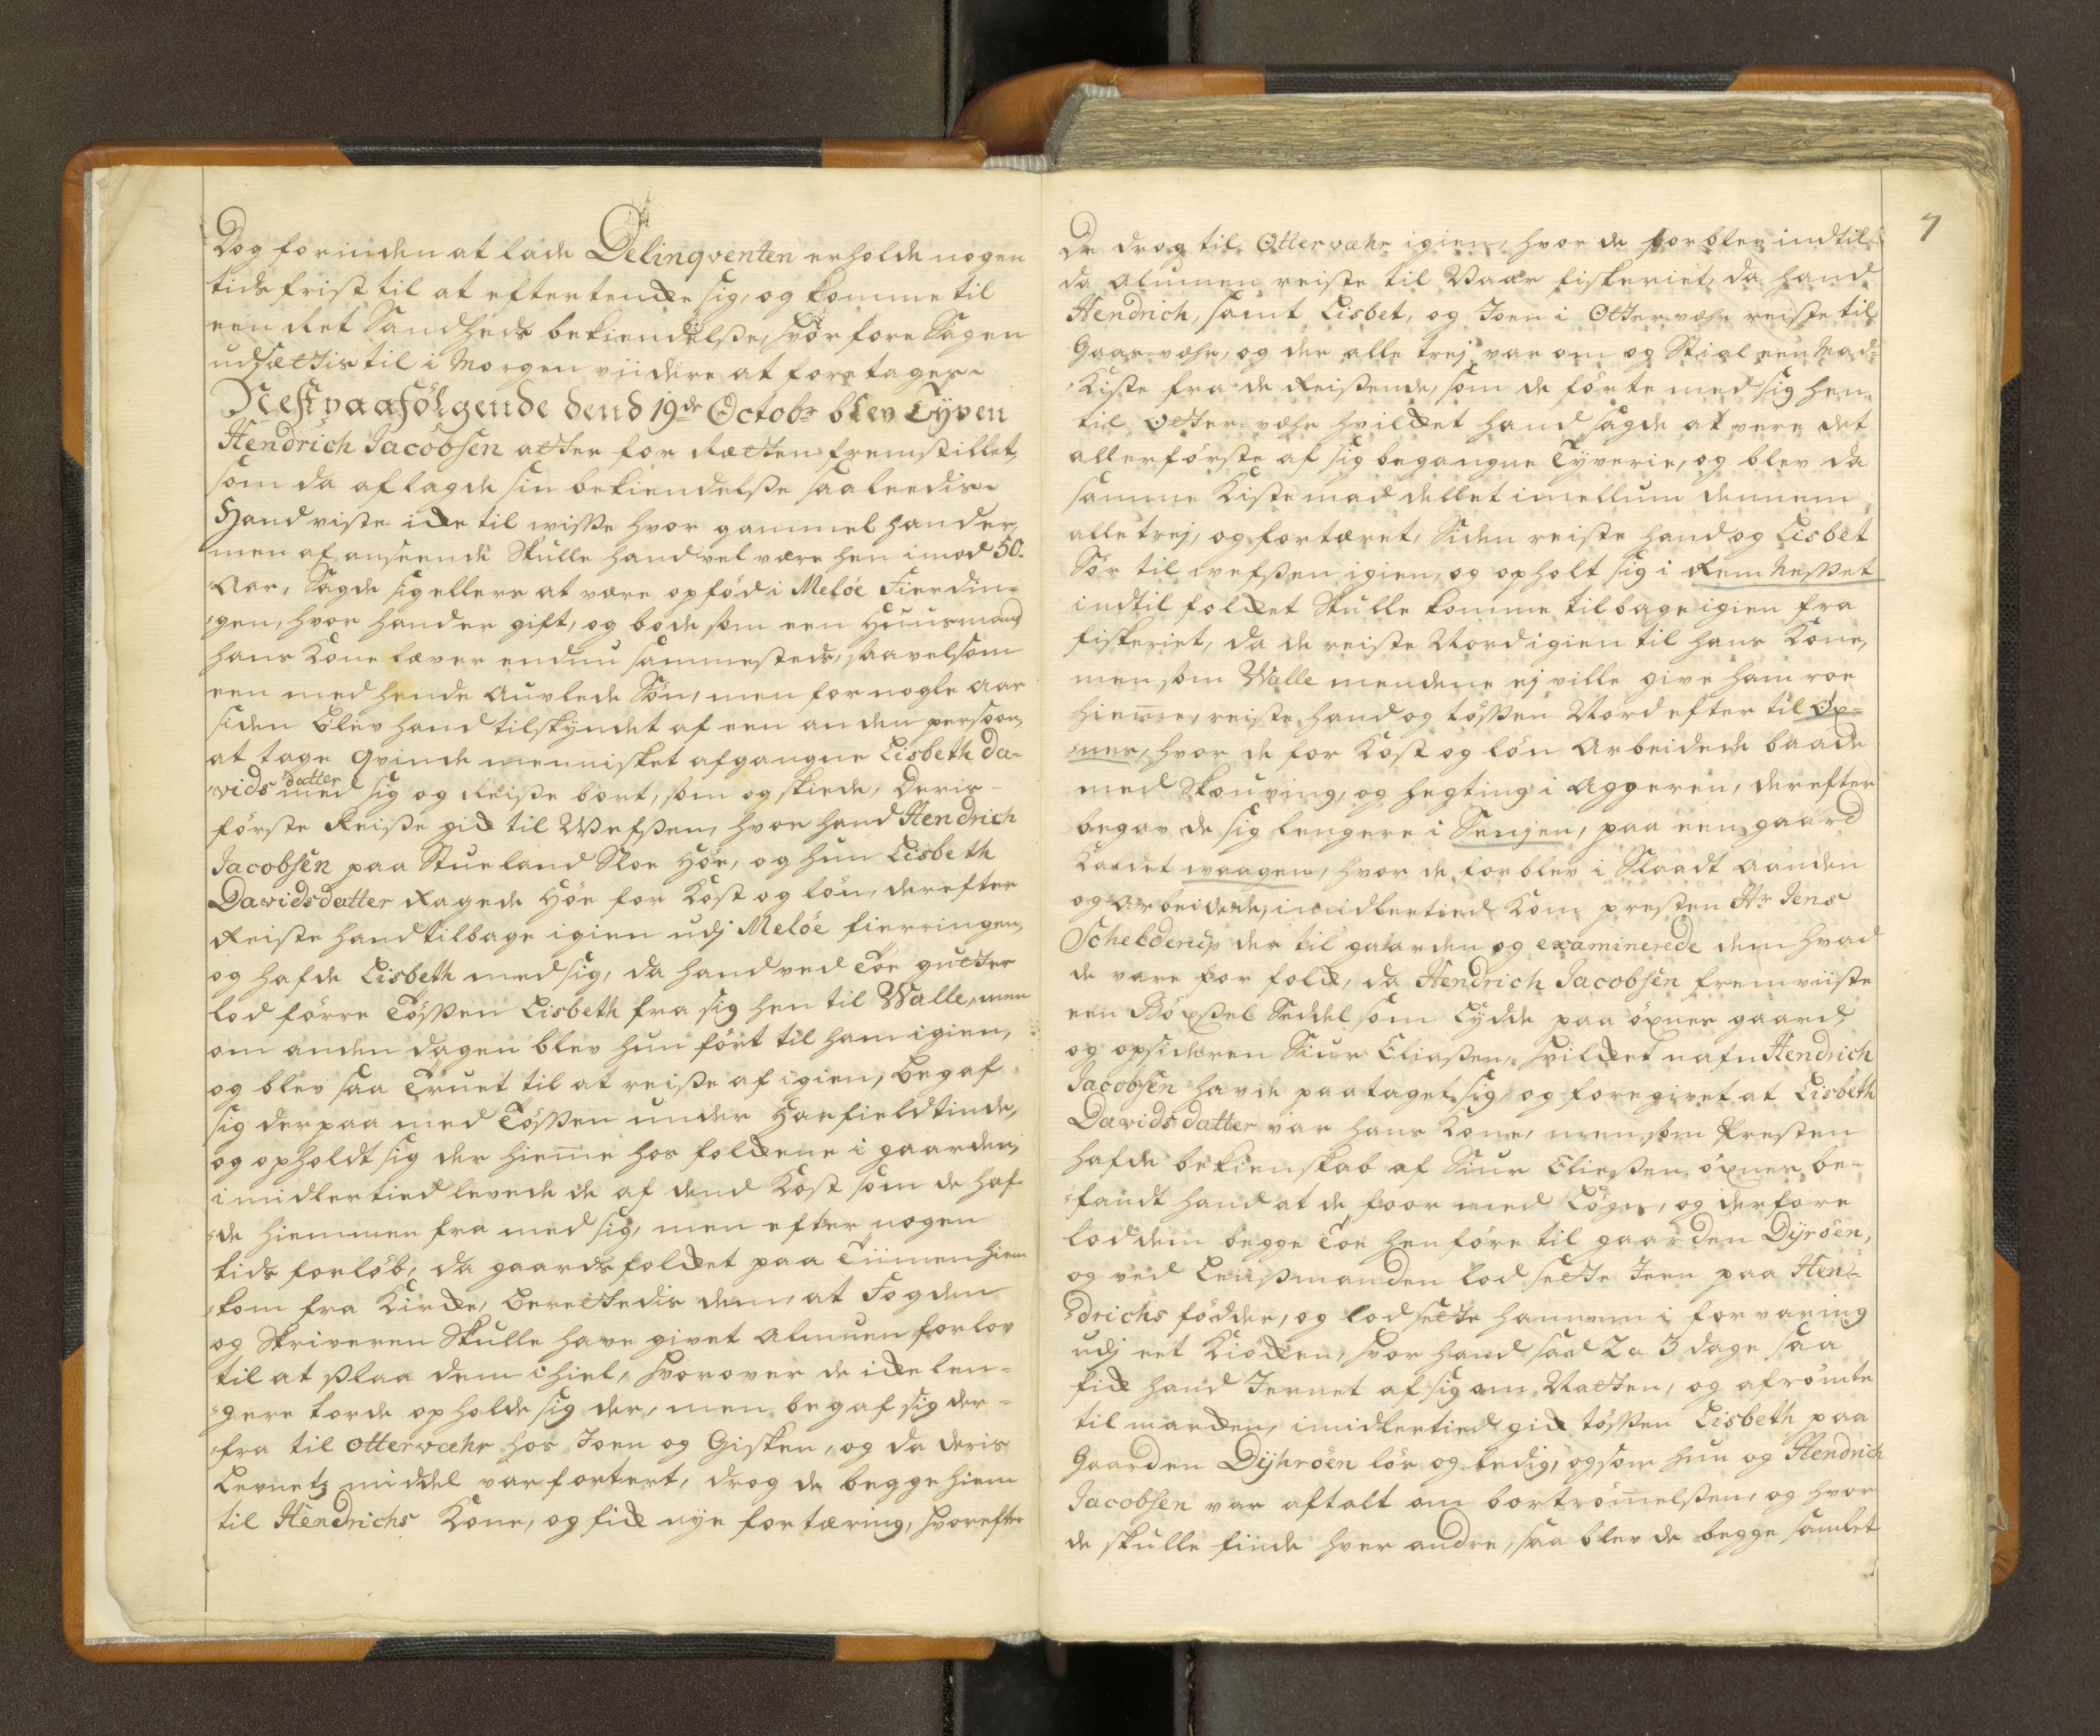 Dog forinden at lade Delinqventen erholde nogen
tids frist til at eftertencke sig, og komme til
een Ret Sandheds bekiendelße, hvor fore Sagen
udsættis til i Morgen viidere at foretages.
Nest paafölgende dend 19de Octobr blev Tyven
Hendrich Jacobsen atter for Rætten fremstillet,
som da aflagde sin bekiendelße saaleedis.
Hand viste icke til wisse hvor gammel hand er,
men af anseende Skulle hand vel være hen imod 50.
Aar, Sagde sig ellers at være opföd i Melöe Fierdin-
gen, hvor hand er gift, og bode som een Huusmand
hans Kone lever endnu sammesteds, saavelsom
een med hende auvlede Sön, men for nogle aar
siden blev hand tilskyndet af een anden person,
at tage qvinde mennisket afgangne Lisbeth Da-
vids datter med sig og Reiße bort, som og skiede, Deris
förste Reiße gik til Wefsen, hvor hand Hendrich
Jacobsen paa Stueland Sloe Höe, og hun Lisbeth
Davidsdatter Ragede Höe for Kost og lön, derefter
Reiste hand tilbage igien udj Melöe fierringen,
og hafde Lisbeth med sig, da hand ved Toe gutter
lod förre Tößen Lisbeth fra sig hen til Walle, men
om anden dagen blev hun fört til ham igien,
og blev saa Truet til at reiße af igien, begaf
sig derpaa med Tößen under Harfieldtinde,
og opholdt sig der hieme hos folckene i gaarden,
imidlertied levede de af dend Kost som de haf-
de hiemmen fra med sig, men efter nogen
tids forlöb, da gaardsfolcket paa Tiimen hiem
kom fra Kircke, berettedis dem, at Fogden
og Skriveren Skulle have givet Almuen forlov
til at slaa dem ihiel, hvorover de icke len-
gere torde opholde sig der, men begaf sig der-
fra til Otterværhr hos Joen og Gisken, og da deris
Levnetz middel var fortert, drog de begge hiem
til Hendrichs Kone, og fick nye fortæring, hvorefter
7
De drog til Otterværhr igien, hvor de forblev indtil
da Almuen reiste til Vaar fiskeriet, da hand
Hendrich, samt Lisbet, og Joen i Otterværhr reiste til
Gaasværhr, og der alle trej var om og Stial een Mad-
Kiste fra de Reißende, som de förte med sig hen
til Otterværhr hvilcket hand sagde at vere det
allerförste af sig begangne Tyverie, og blev da
samme Kiste mad dellet imellum dennem
alle trej, og fortæret, Siden reiste hand og Lisbet
Sör til Wefßen igien, og opholt sig i Remnesset
indtil folcket Skulle komme tilbage igien fra
fiskeriet, da de reiste Nord igien til hans Kone,
men som Walle mendene ej ville give ham roe
hieme, reiste hand og tößen Nordefter til Öx-
nes, hvor de for Kost og lön Arbeidede baade
med Skouving, og hegting i Aggeren, derefter
begav de sig lengere i Senjen, paa een gaard
Kaldet waagen, hvor de forblev i Slaadt aanden
og arbeidede, imidlertied Kom presten Hr Jens
Schelderup der til gaarden og examinerede dem hvad
de vare for folck, da Hendrich Jacobsen fremviiste
een Böxßel Seddel som Lydde paa öxnes gaard,
og opsideren Siur Eliaßen, hvilcket nafn Hendrich
Jacobsen havde paataget sig, og foregivet at Lisbeth
Davidsdatter var hans Kone, men som Presten
hafde bekienskab af Siur Eliaßen öxnes, be-
fandt hand at de foor med Lögn, og derfore
lod dem begge Toe henföre til gaarden Dyröen,
og ved Lensmanden lod sette Jern paa Hen-
drichs födder, og lod sette hannem i forvaring
udj eet Kiöcken, hvor hand sad 2 a 3 dage saa
fick hand Jernet af sig om Natten, og afrömte
til marcken, imidlertied gick tößen Lisbeth paa
Gaarden Dyhröen lös og ledig, og som hun og Hendrich
Jacobsen var aftalt om bortrömelßen, og hvor
de skulle finde hver andre, saa blev de begge samlet